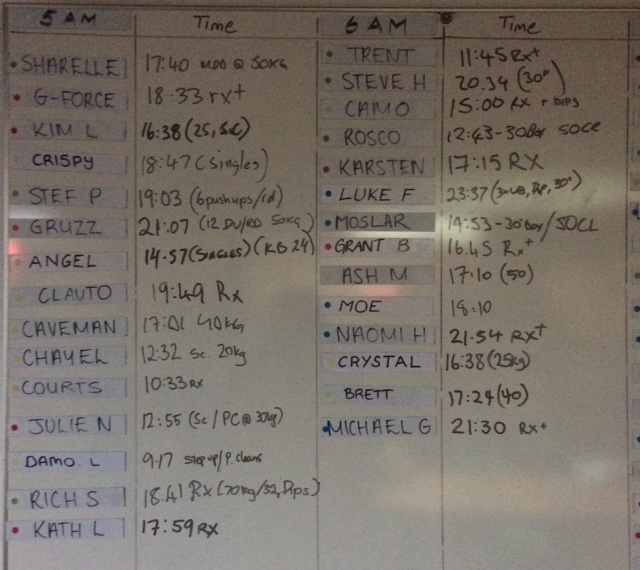 5 AM Time
SHARELLE 17:40 mod @ 50KG
G-FORCE 18:33 rx+
KIM L 16:38 (25, SC)
CRISPY 18:47 (singles)
STEF P 19:03 (6pushups/rd)
GRUZZ 21:07 (12 DU/RD 50KG)
ANGEL 14:57 (SINGLES) (KB 24)
CLAUTO 19:49 Rx
CAVEMAN 17:01 40KG
CHAYEL 12:32 Sc. 20kg
COURTS 10:33 Rx
JULIE N 12:55 (Sc / PC @ 30kg)
DAMO. L 9:17 stepup/P.cleans
RICH S 18.41 Rx (70kg/52, Dips)
KATH L 17:59 RX
6 AM Time
TRENT 11:45 Rx+
STEVE H 20.34 (30")
CAMO 15:00 RX + DIPS
ROSCO 12:43-30Box
KARSTEN 17:15 RX
LUKE F 23:37
MOSLAR 14:53-30"box/50CL
GRANT B 16.45 Rx+
ASH M 17:10 (50)
MOE 18:10
NAOMI H 21.54 RX+
CRYSTAL 16:38 (25kg)
BRETT 17:24 (40)
MICHAEL G 21:30 Rx+